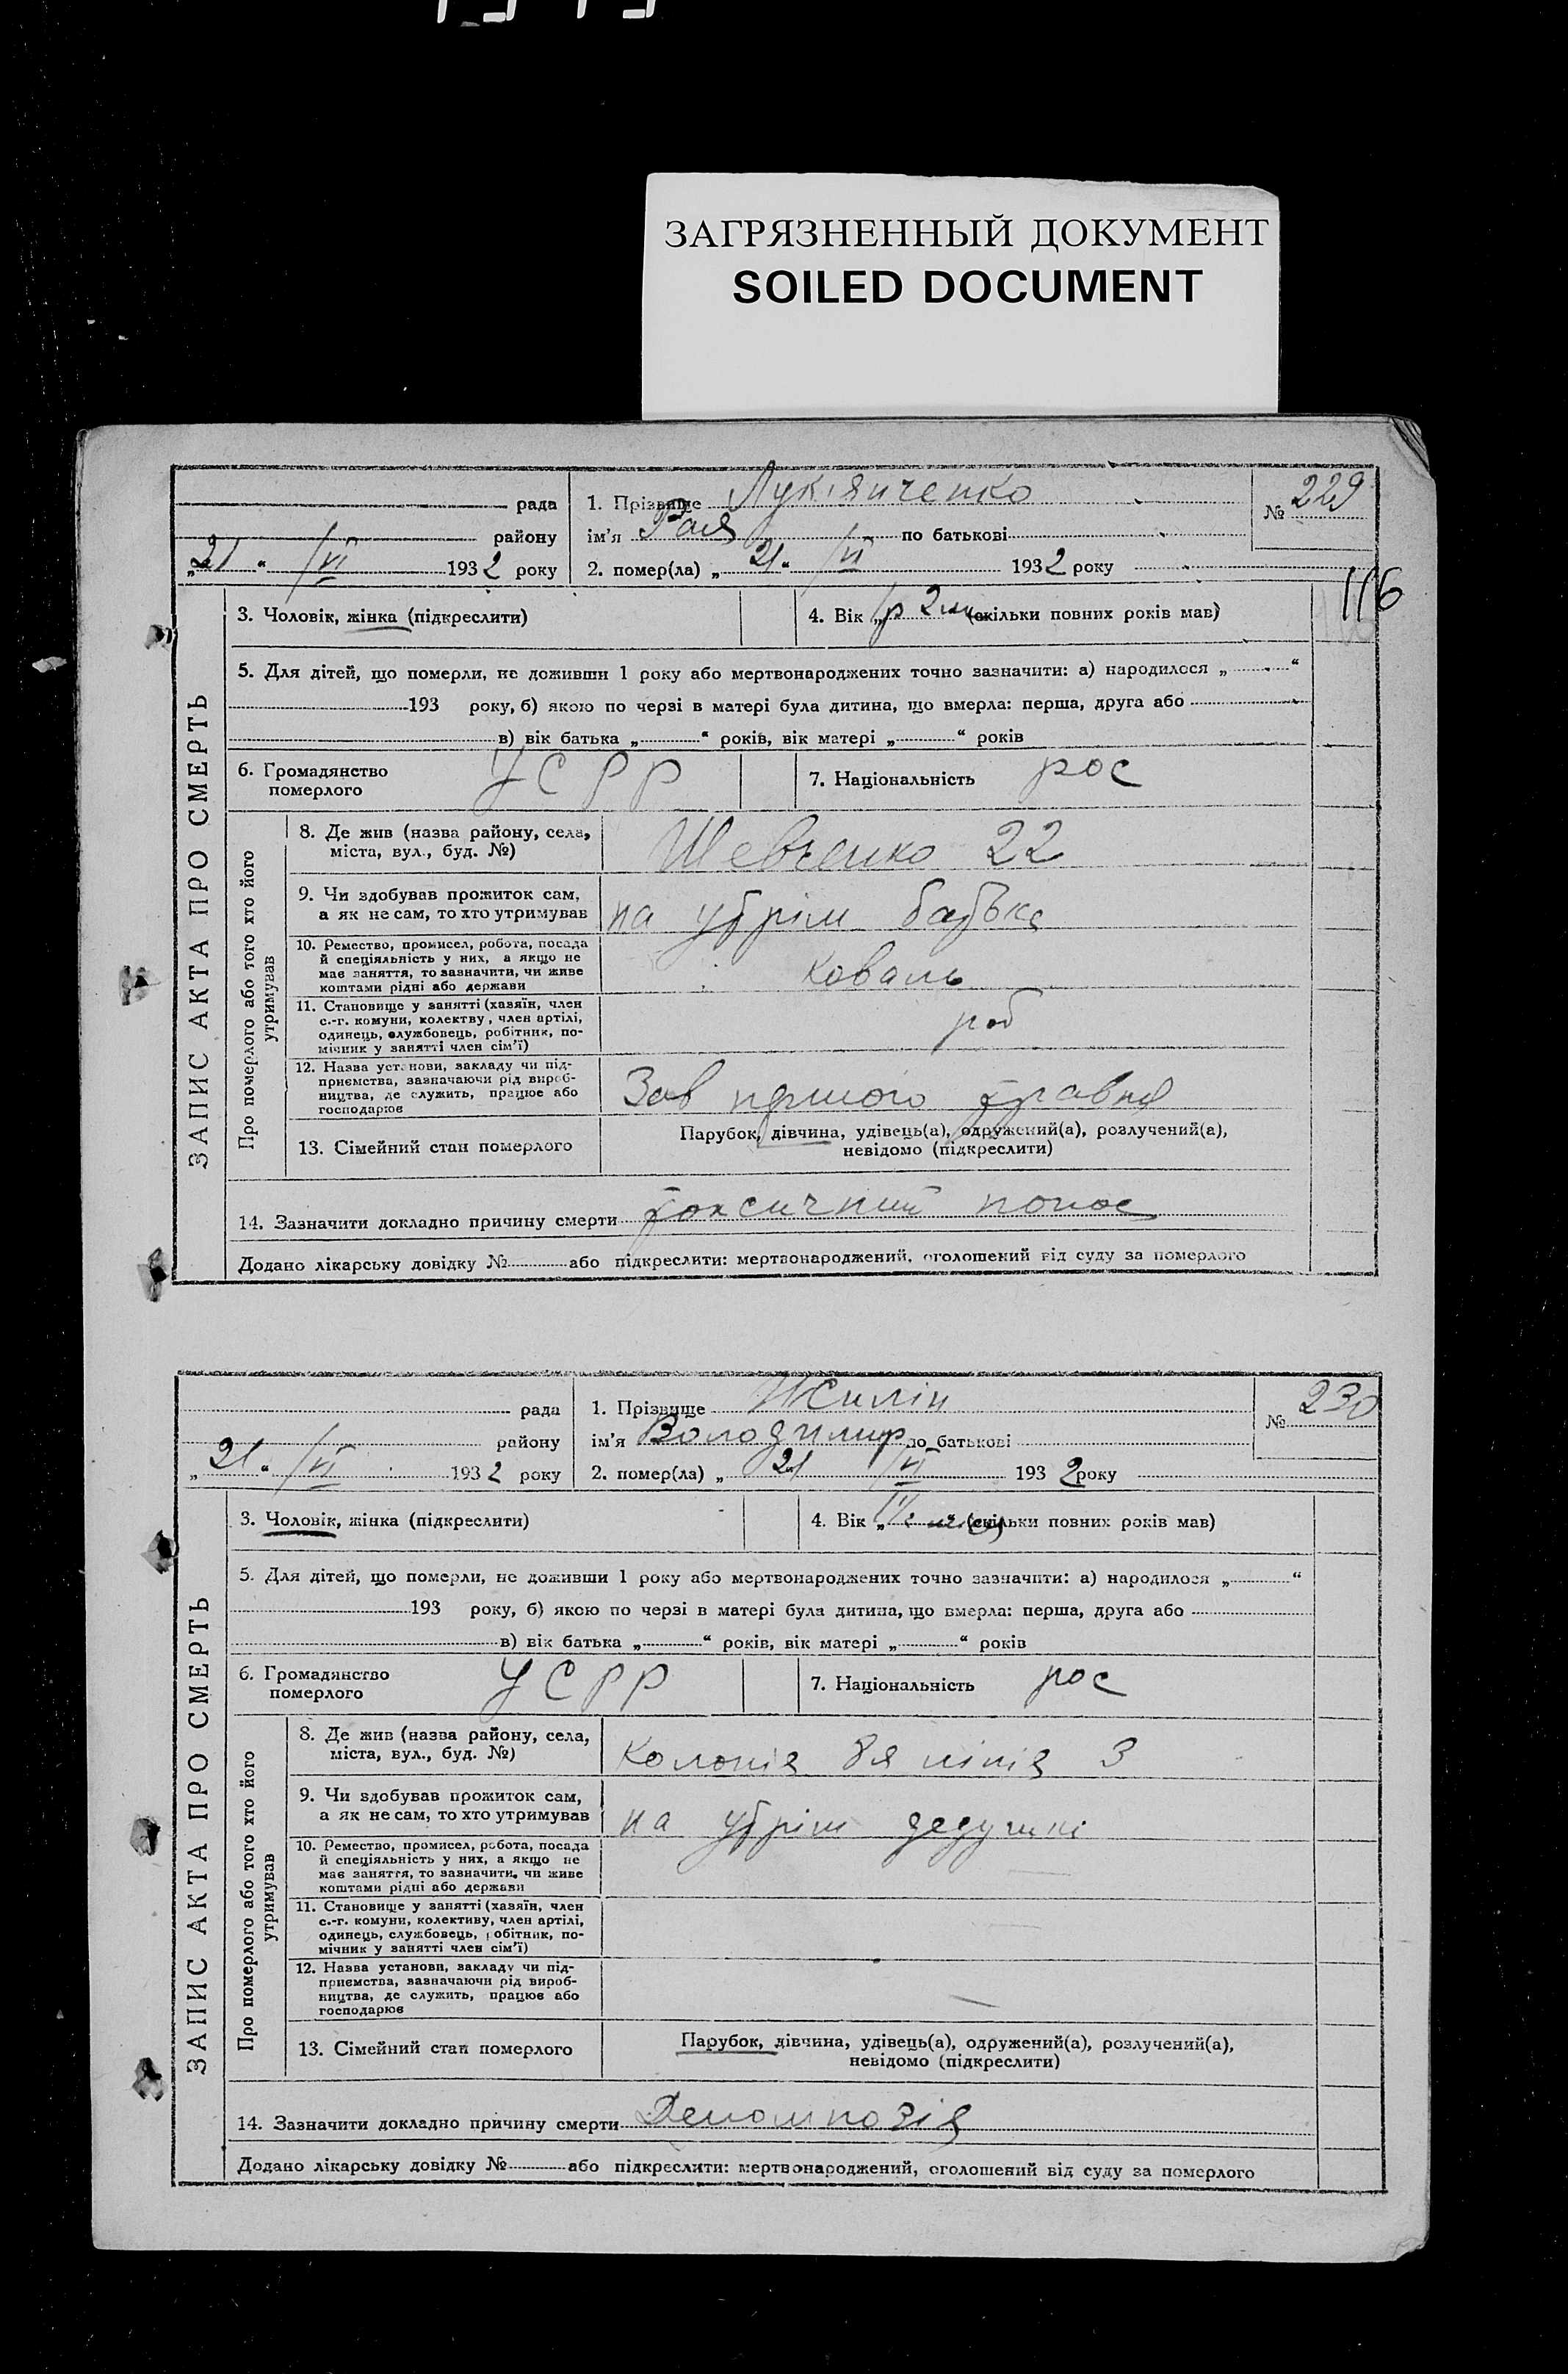 ЗАГРЯЗНЕННЫЙ ДОКУМЕНТ
SOILED DOCUMENT
116
ЗАПИС АКТА ПРО СМЕРТЬ
рада
району
„21“ /VI 1932 року
1. Прізвище Лук'янченко
ім'я Рая по батькові
2. помер(ла) „21“ /VI 1932 року
№ 229
3. Чоловік, жінка (підкреслити)
4. Вік „1р 2м (скільки повних років мав)
5. Для дітей, що померли, не доживши 1 року або мертвонароджених точно зазначити: а) народилося „ “
193 року, б) якою по черзі в матері була дитина, що вмерла: перша, друга або
в) вік батька „ “ років, вік матері „ “ років
6. Громадянство
померлого
УСРР
7. Національність рос
Про померлого або того хто його
утримував
8. Де жив (назва району, села,
міста, вул., буд. №)
Шевченко 22
9. Чи здобував прожиток сам,
а як не сам, то хто утримував
на утрім батька
10. Ремество, промисел, робота, посада
й спеціяльність у них, а якщо не
має заняття, то зазначити, чи живе
коштами рідні або держави
коваль
11. Становище у занятті (хазяїн, член
с.-г. комуни, колектву, член артілі,
одинець, службовець, робітник, по-
мічник у занятті член сім'ї)
роб
12. Назва установи, закладу чи під-
приємства, зазначаючи рід вироб-
ництва, де служить, працює або
господарює
Зав першого травня
13. Сімейний стан померлого
Парубок, дівчина, удівець(а), одружений(а), розлучений(а),
невідомо (підкреслити)
14. Зазначити докладно причину смерти токсичний понос
Додано лікарську довідку № або підкреслити: мертвонароджений, оголошений від суду за померлого
ЗАПИС АКТА ПРО СМЕРТЬ
рада
району
„21“ /VI 1932 року
1. Прізвище Жилін
ім'я Володимир по батькові
2. помер(ла) „21 /VI 1932 року
№ 230
3. Чоловік, жінка (підкреслити)
4. Вік „1½ (скільки повних років мав)
5. Для дітей, що померли, не доживши 1 року або мертвонароджених точно зазначити: а) народилося „ “
193 року, б) якою по черзі в матері була дитина, що вмерла: перша, друга або
в) вік батька „ “ років, вік матері „ “ років
6. Громадянство
померлого
УСРР
7. Національність рос
Про померлого або того хто його
утримував
8. Де жив (назва району, села,
міста, вул., буд. №)
Колонія 8я лінія 3
9. Чи здобував прожиток сам,
а як не сам, то хто утримував
на утрім дедушкі
10. Ремество, промисел, робота, посада
й спеціяльність у них, а якщо не
має заняття, то зазначити, чи живе
коштами рідні або держави
11. Становище у занятті (хазяїн, член
с.-г. комуни, колективу, член артілі,
одинець, службовець, робітник, по-
мічник у занятті член сім'ї)
12. Назва установи, закладу чи під-
приємства, зазначаючи рід вироб-
ництва, де служить, працює або
господарює
13. Сімейний стан померлого
Парубок, дівчина, удівець(а), одружений(а), розлучений(а),
невідомо (підкреслити)
14. Зазначити докладно причину смерти
Додано лікарську довідку № або підкреслити: мертвонароджений, оголошений від суду за померлого